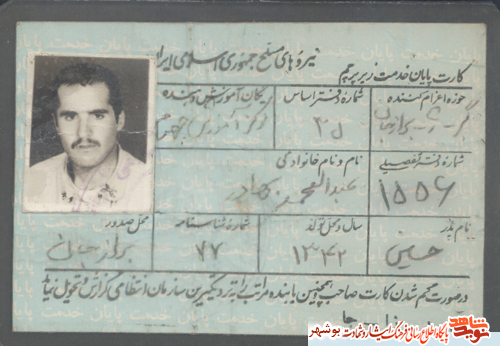 نیروهای مسلح جمهوری اسلامی ایران
کارت پایان خدمت زیر پرچم
حوزه اعزام کننده
شماره دفتر اساس
یگان آموزش دهنده
برازجان
۲۵
مرکز آموزش
شماره دفتر تفصیلی
نام و نام خانوادگی
۱۵۵۶
نام پدر
سال و محل تولد
شماره شناسنامه
محل صدور
حسین
۱۳۴۲
۷۷
برازجان
در صورت گم شدن کارت صاحب و همچنین یابنده مراتب را به نزدیکترین سازمان انتظامی گزارش و تحویل نماید
پایگاه اطلاع رسانی فرهنگ ایثار و شهادت بوشهر
نوید شاهد